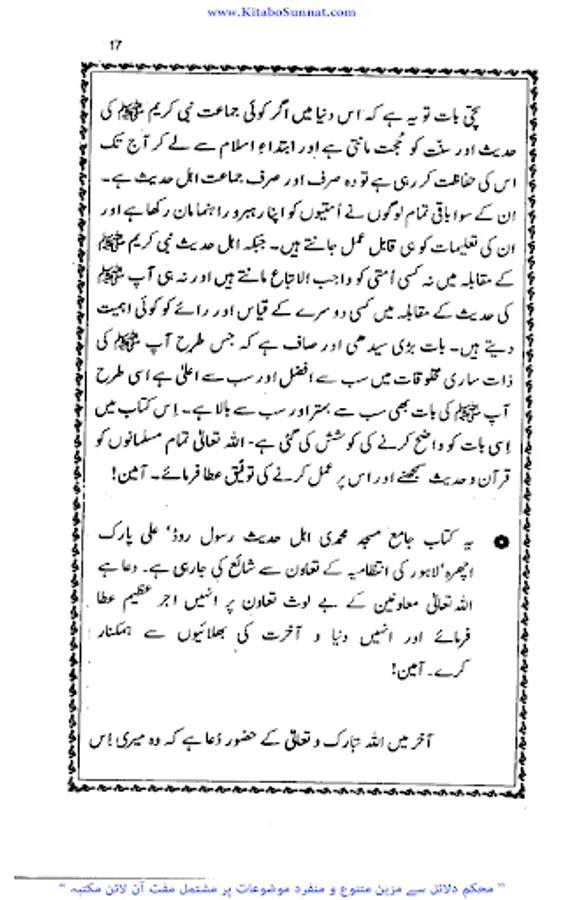 www.KitaboSunnat.com
17
سچی بات تو یہ ہے کہ اس دنیا میں اگر کوئی جماعت نبی کریم ﷺ کی
حدیث اور سنّت کو حُجت مانتی ہے اور ابتداءِ اسلام سے لے کر آج تک
اس کی حفاظت کر رہی ہے تو وہ صرف اور صرف جماعت اہل حدیث ہے۔
ان کے سوا باقی تمام لوگوں نے اُمتیوں کو اپنا رہبر و راہنما مان رکھا ہے اور
ان کی تعلیمات کو ہی قابل عمل جانتے ہیں۔ جبکہ اہل حدیث نبی کریم ﷺ
کے مقابلہ میں نہ کسی اُمتی کو واجب الاتباع مانتے ہیں اور نہ ہی آپ ﷺ
کی حدیث کے مقابلہ میں کسی دوسرے کے قیاس اور رائے کو کوئی اہمیت
دیتے ہیں۔ بات بڑی سیدھی اور صاف ہے کہ جس طرح آپ ﷺ کی
ذات ساری مخلوقات میں سب سے افضل اور سب سے اعلیٰ ہے اسی طرح
آپ ﷺ کی بات بھی سب سے بہتر اور سب سے بالا ہے۔ اِس کتاب میں
اِسی بات کو واضح کرنے کی کوشش کی گئی ہے۔ اللہ تعالیٰ تمام مسلمانوں کو
قرآن و حدیث سمجھنے اور اس پر عمل کرنے کی توفیق عطا فرمائے۔ آمین!
یہ کتاب جامع مسجد محمدی اہل حدیث رسول روڈ، علی پارک
اچھرہ، لاہور کی انتظامیہ کے تعاون سے شائع کی جارہی ہے۔ دعا ہے
اللہ تعالیٰ معاونین کے بے لوث تعاون پر انہیں اجر عظیم عطا
فرمائے اور انہیں دنیا و آخرت کی بھلائیوں سے ہمکنار
کرے۔ آمین!
آخر میں اللہ تبارک و تعالیٰ کے حضور دُعا ہے کہ وہ میری اِس
" محکم دلائل سے مزین متنوع و منفرد موضوعات پر مشتمل مفت آن لائن مکتبہ "